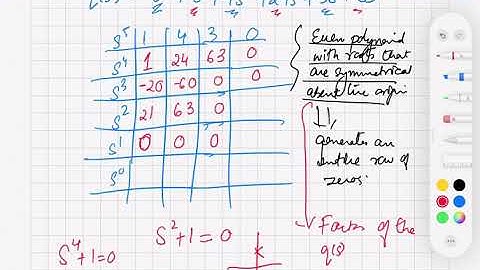 S⁵ 1 4 3 0
S⁴ 1 24 63 0
S³ -20 -60 0 0
S² 21 63 0
S¹ 0 0 0
S⁰
Even polynomial
with roots that
are symmetrical
about the origin
generates an
entire row of
zeros.
Factor of the
q(s)
S⁴+1=0
S²+1=0